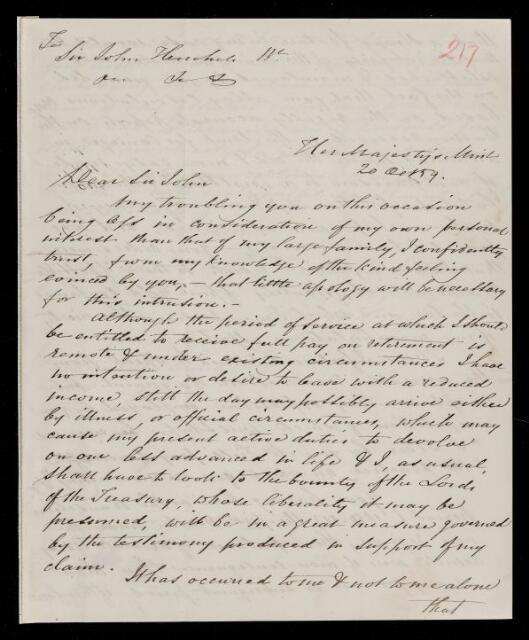 To
Sir John Herschel Bt
217
Her Majesty's Mint
20 Oct 59.
Dear Sir John
My troubling you on this occasion
being less in consideration of my own personal
interest than that of my large family, I confidently
trust, from my knowledge of the kind feeling
evinced by you, – that little apology will be necessary
for this intrusion. –
Although the period of service at which I should
be entitled to receive full pay on retirement is
remote & under existing circumstances I have
no intention or desire to leave with a reduced
income, still the day may possibly arrive either
by illness, or official circumstances, which may
cause my present active duties to devolve
on one less advanced in life & I, as usual,
shall have to look to the bounty of the Lords
of the Treasury, whose liberality it may be
presumed, will be in a great measure governed
by the testimony produced in support of my
claim.
It has occurred to me & not to me alone
that